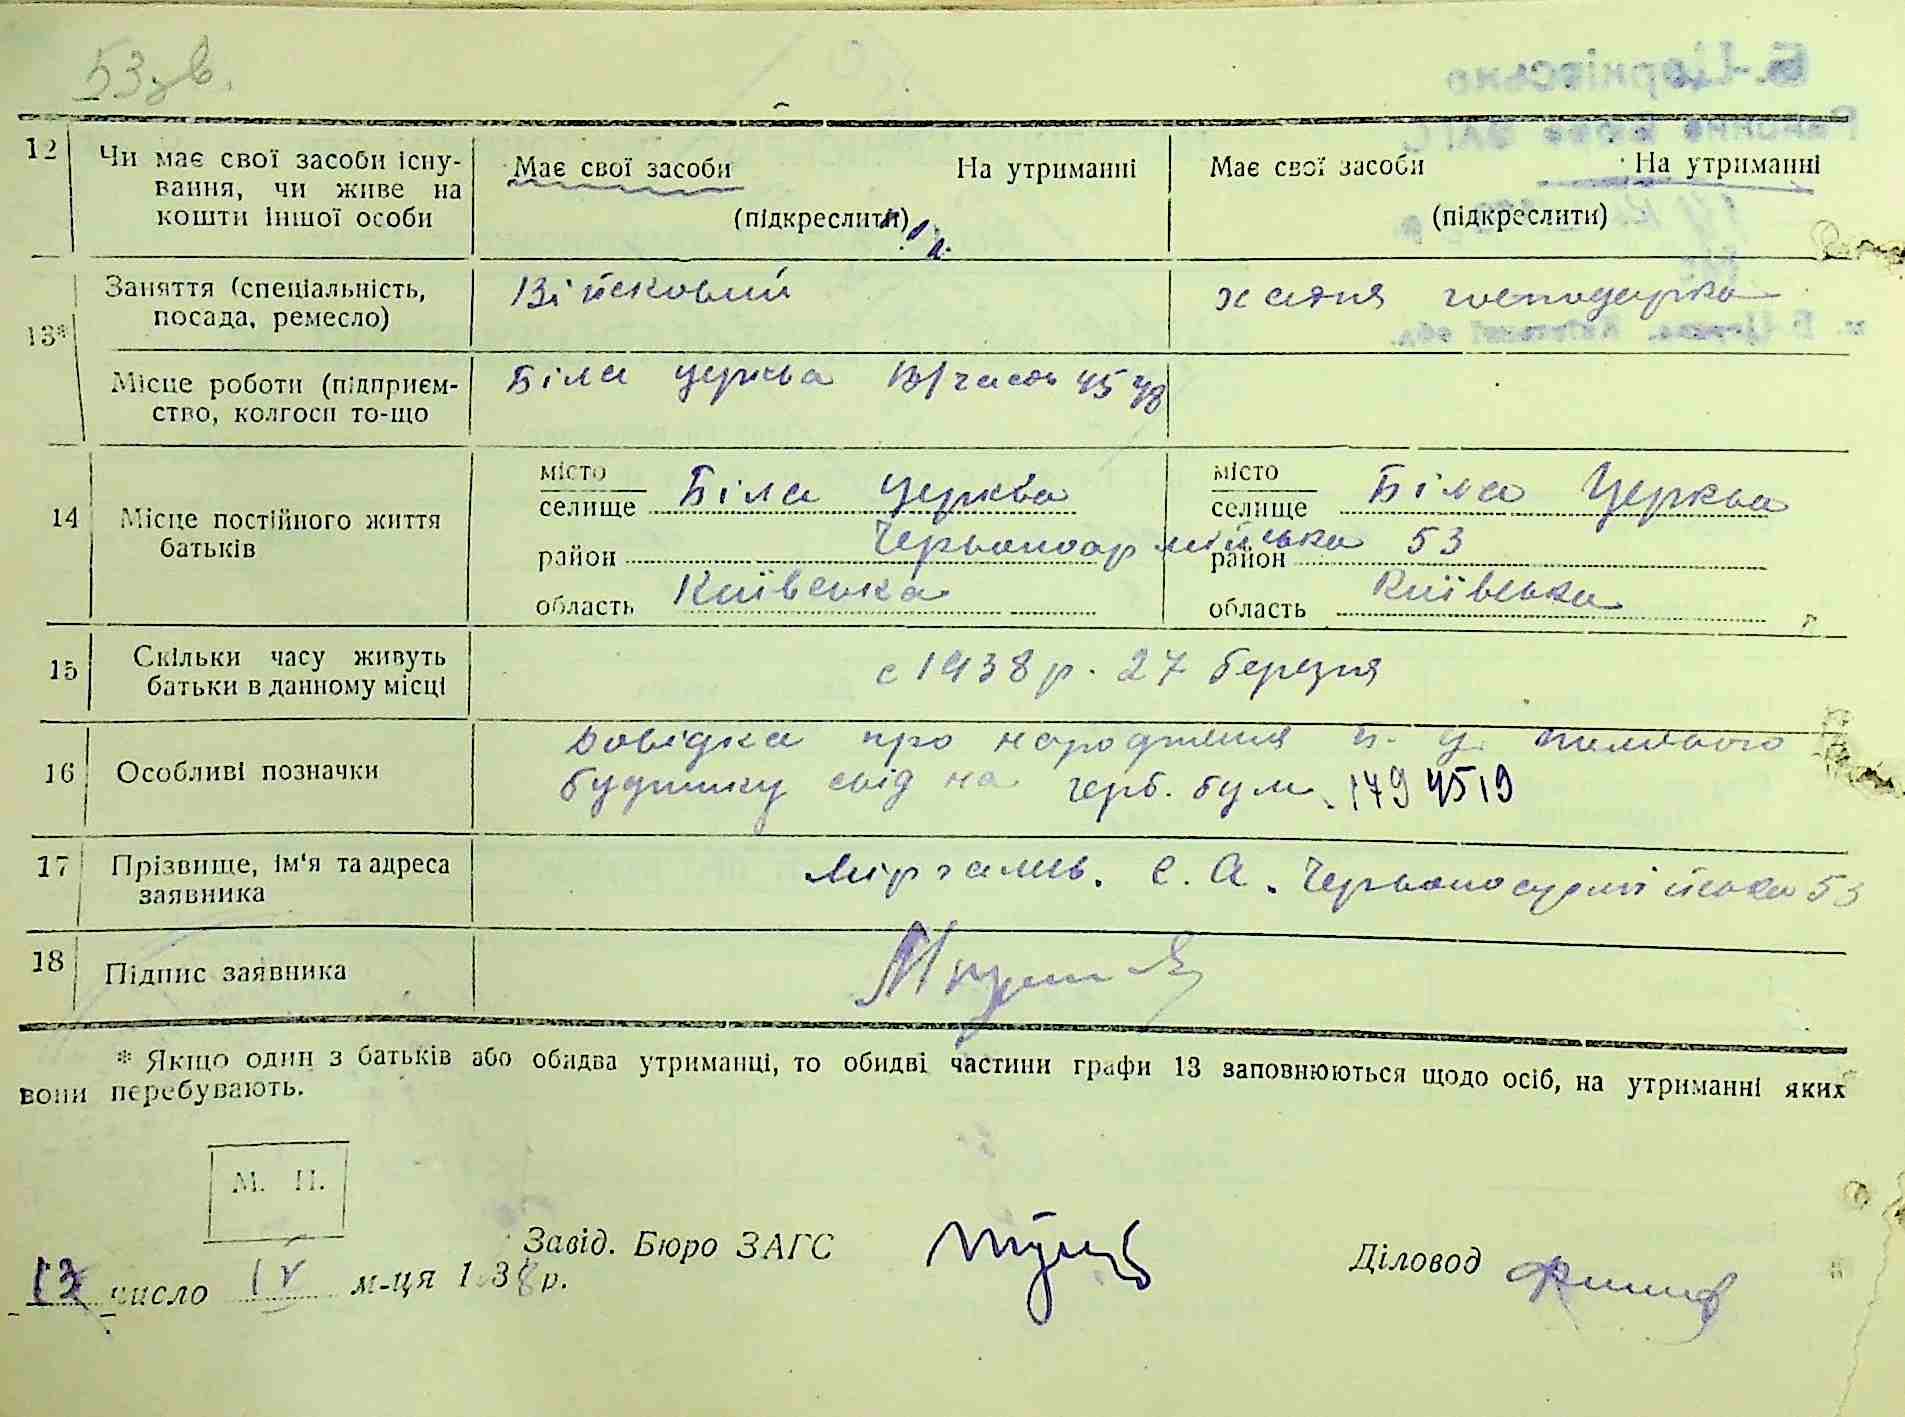 53 зв.
12 Чи має свої засоби існу- Має свої засоби На утриманні Має свої засоби На утриманні
вання, чи живе на
кошти іншої особи (підкреслити) (підкреслити)
13* Заняття (спеціальність, Війсковий хатня господарка
посада, ремесло)
Місце роботи (підприєм- Біла церква В/часть 4548
ство, колгосп то-що
14 Місце постійного життя батьків
місто Біла церква місто Біла Церква
селище селище
район Червоноармійська 53 район
область Київська область Київська
15 Скільки часу живуть с 1938 р. 27 березня
батьки в данному місці
16 Особливі позначки Довідка про народження Б. Ц. пологового
будинку свід на герб. бум. 1794519
17 Прізвище, ім'я та адреса С. А. Червоноармійська 53
заявника
18 Підпис заявника
* Якщо один з батьків або обидва утриманці, то обидві частини графи 13 заповнюються щодо осіб, на утриманні яких
вони перебувають.
М. П.
Завід. Бюро ЗАГС Діловод
13 число IV м-ця 1938 р.